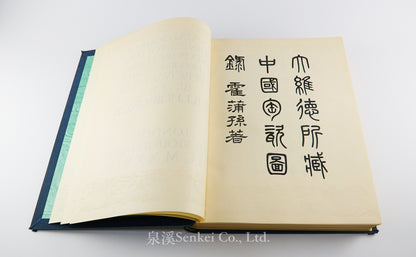 大維德所藏
中國匋瓷圖
錄 霍蒲孫著
泉溪Senkei Co., Ltd.